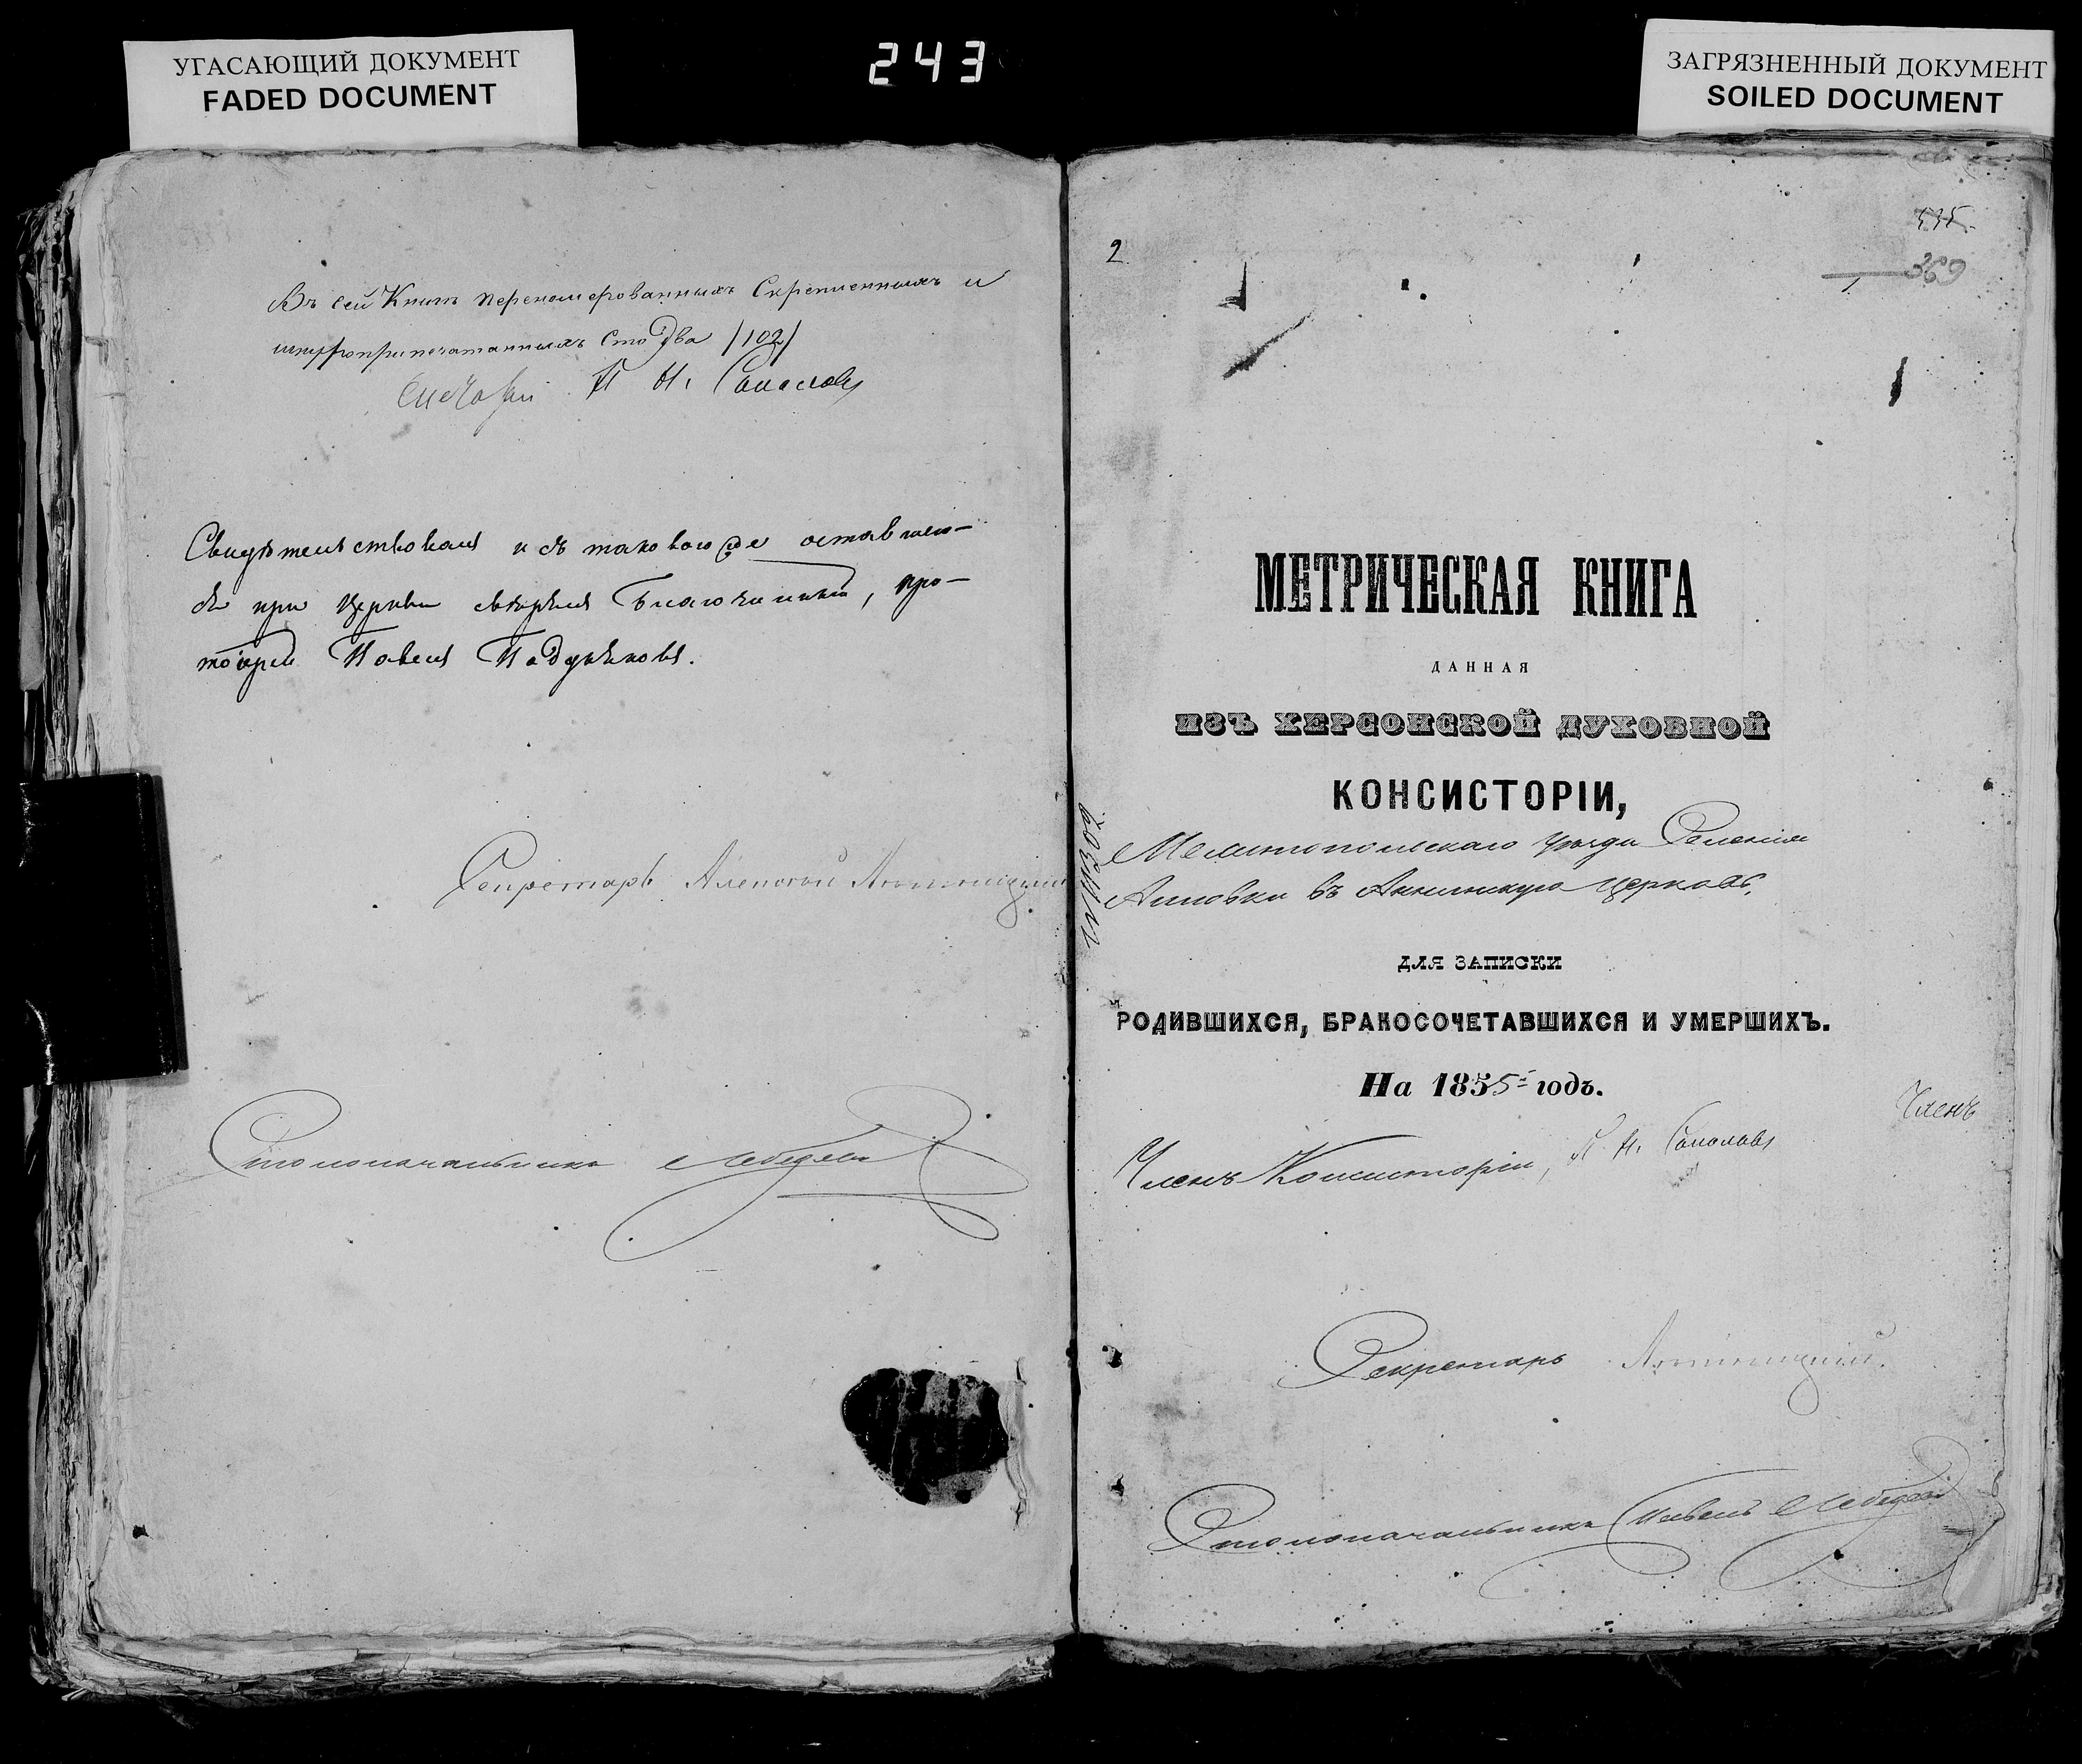 УГАСАЮЩИЙ ДОКУМЕНТ
FADED DOCUMENT
243
ЗАГРЯЗНЕННЫЙ ДОКУМЕНТ
SOILED DOCUMENT
Въ сей Книгѣ переномерованныхъ Скрепленныхъ и
шнуроприпечатанныхъ Сто Два /102/
П Н. Соколовъ
Свидѣтельствовалъ и съ таковою же оставшею-
ся при Церкви свѣрялъ Благочинный, про-
тоіерей Павелъ
Секретарь Алексѣй
Столоначальникъ Лебедевъ
2
369
МЕТРИЧЕСКАЯ КНИГА
ДАННАЯ
ИЗЪ ХЕРСОНСКОЙ ДУХОВНОЙ
КОНСИСТОРІИ,
Мелитопольскаго уѣзда Селенія
Анновки въ Аннинскую церковь,
ДЛЯ ЗАПИСКИ
РОДИВШИХСЯ, БРАКОСОЧЕТАВШИХСЯ И УМЕРШИХЪ.
На 1855й годъ.
Членъ
Членъ Консисторіи, П Н. Соколовъ
Секретарь
Столоначальникъ Павелъ Лебедевъ